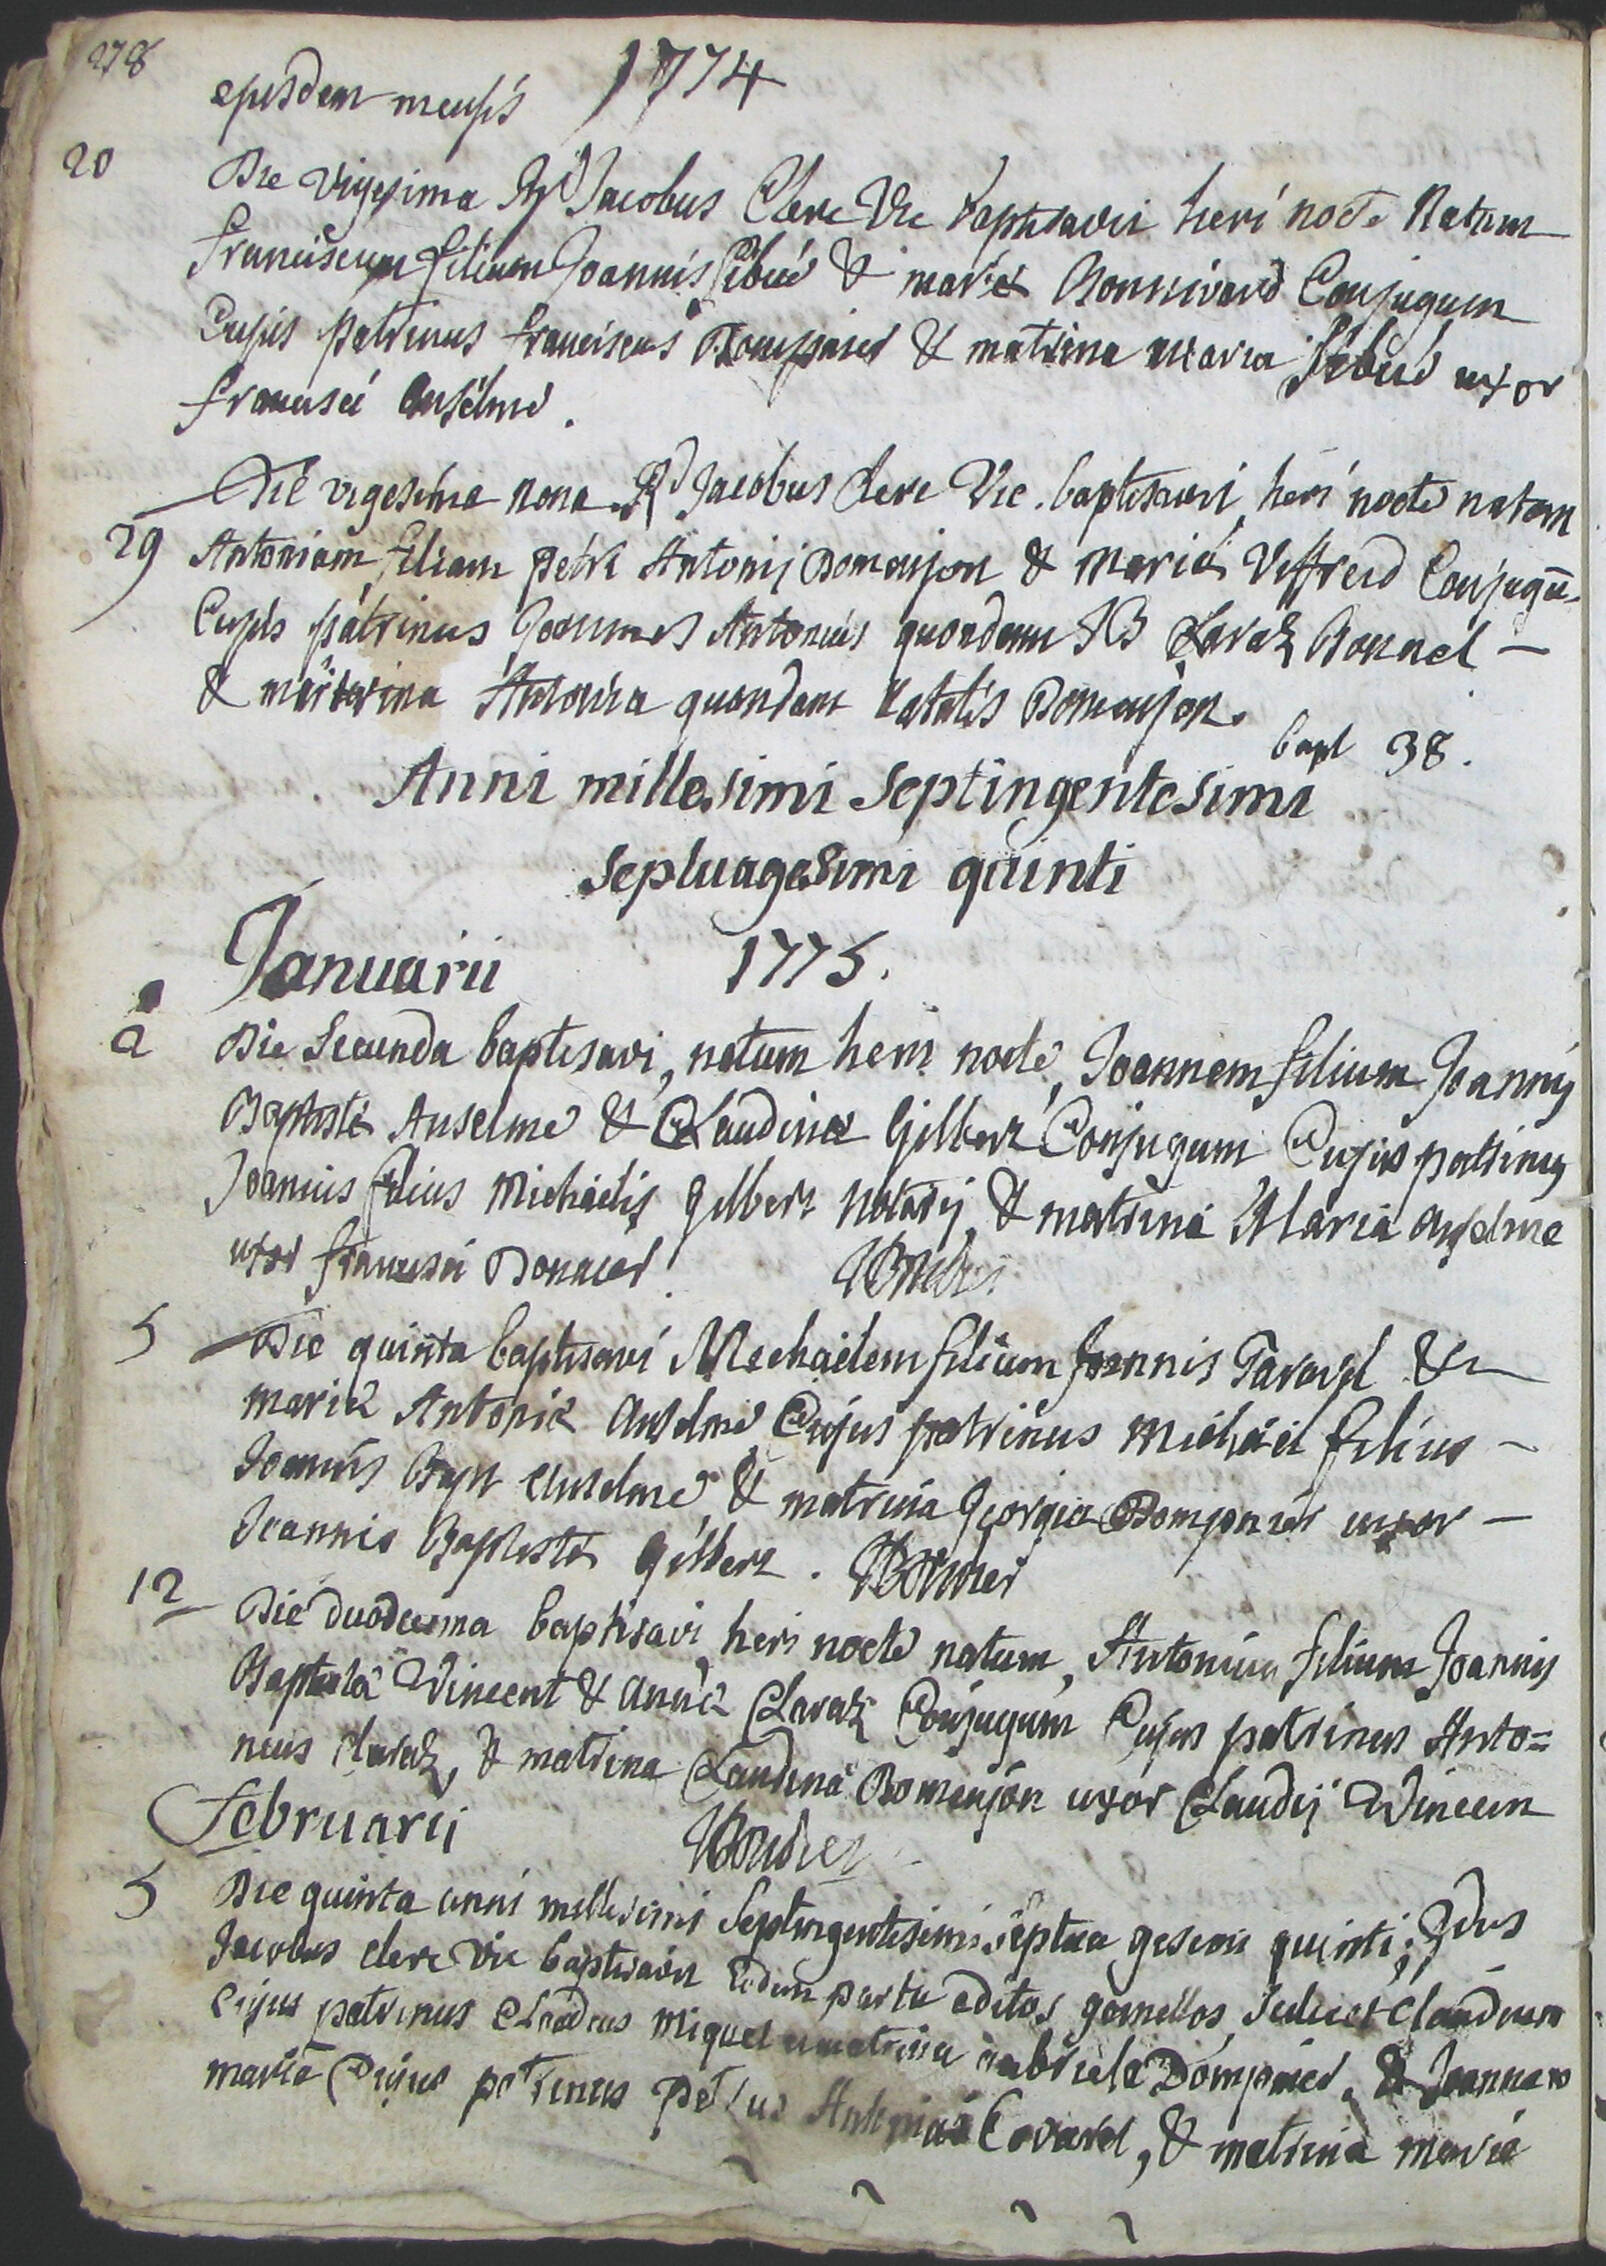 278
ejusdem mensis 1774
20 Die vigesima Rd Jacobus Clere Vic baptisavit heri nocte Natum
franciscum filium Joannis Sibué & mariæ Bonnivard Conjugum
Cujus patrinus franciscus Dompnier & matrina maria Sibué uxor
francisci Anselme.
Die vigesima nona Rd Jacobus clere Vic. baptisavit heri nocte natam
29 Antoniam filiam petri Antonij Domenjon & Mariæ Veffreid Conjugū
Cujus patrinus Joannes Antonius quondam JB Claraz Bonnel
& matrina Antonia quondam Natalis Domenjon.
bapt 38.
Anni millesimi septingentesimi
septuagesimi quinti
Januarii 1775.
2 Die Secunda baptisavi, natum heri nocte, Joannem filium Joannis
Baptistæ Anselme & Claudinæ Gilbert Conjugum Cujus patrinus
Joannis filius Michaelis Gilbert Notarij & matrina Maria Anselme
uxor francisci
5 Die quinta baptisavi Michaelem filium Joannis Taravel &
mariæ Antoniæ Anselme Cujus patrinus Michael filius
Joannis Bapt Anselme & matrina Georgia Dompnier uxor
Joannis Baptistæ Gilbert.
12 Die duodecima baptisavi heri nocte natum, Antonium filium Joannis
Baptistæ Vincent & Annæ Claraz Conjugum Cujus patrinus Anto=
nius claraz, & matrina Claudina Domenjon uxor Claudij Vincen
Februarij
5 Die quinta anni millesimi Septingentesimi septua gesimi quinti,
Jacobus clere vic baptisavit Eodem partu editos gemellos, scilicet Claudium
Cujus patrinus Claudius Miquel & matrina Gabriela Dompnier, & Joannam
maria Cujus patrinus Petrus Antonius Covarel, & matrina maria